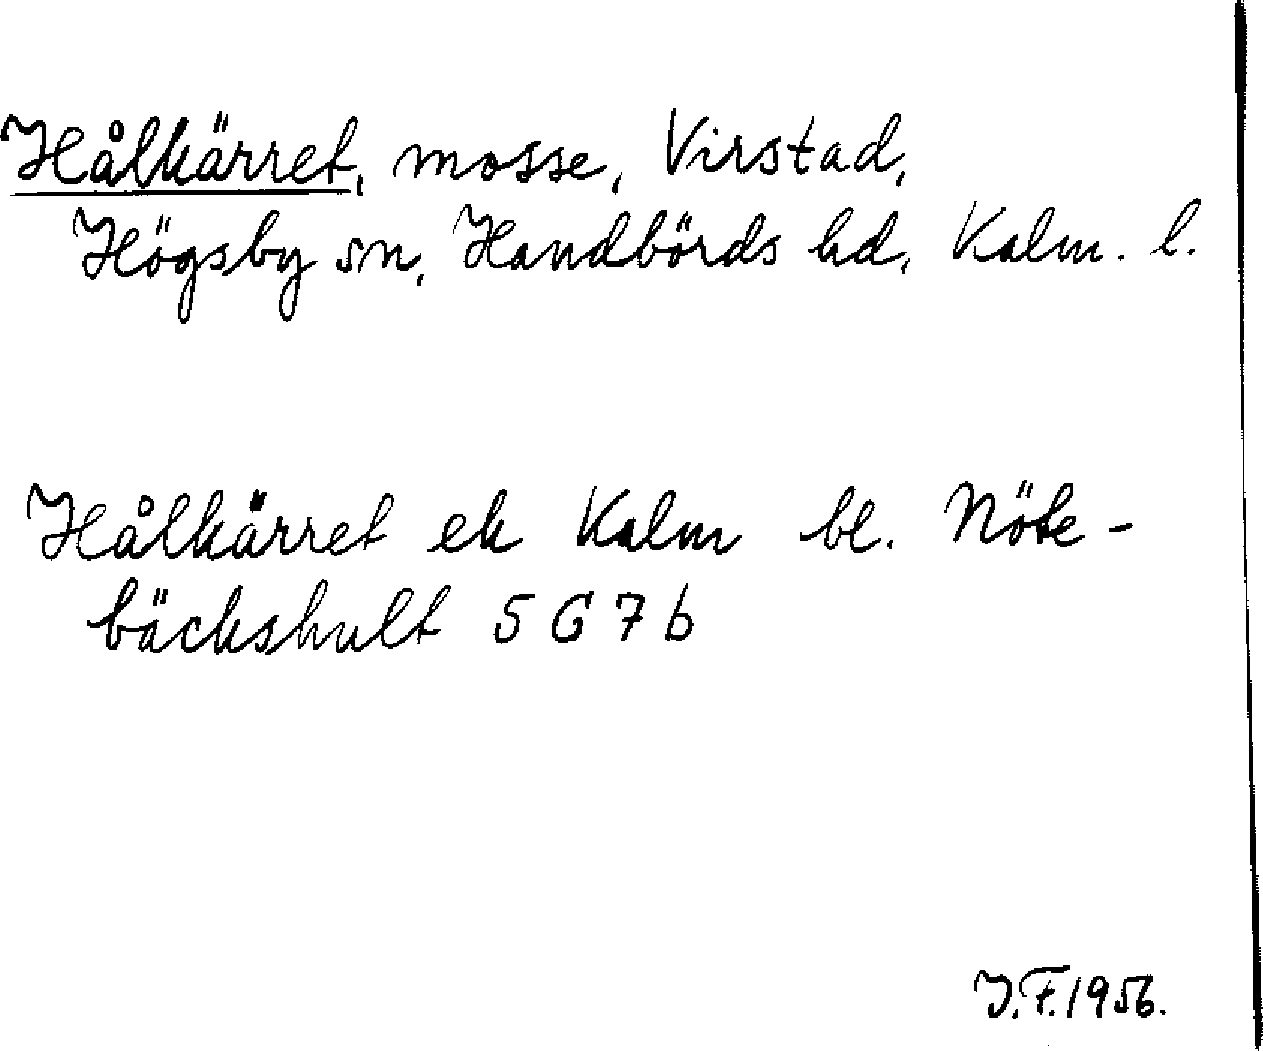 Hålkärret, mosse, Virstad,
Högsby sn, Handbörds hd, Kalm. l.
Hålkärret ek Kalm bl. Nöte-
bäckshult 5 G 7 b
J.F. 1956.